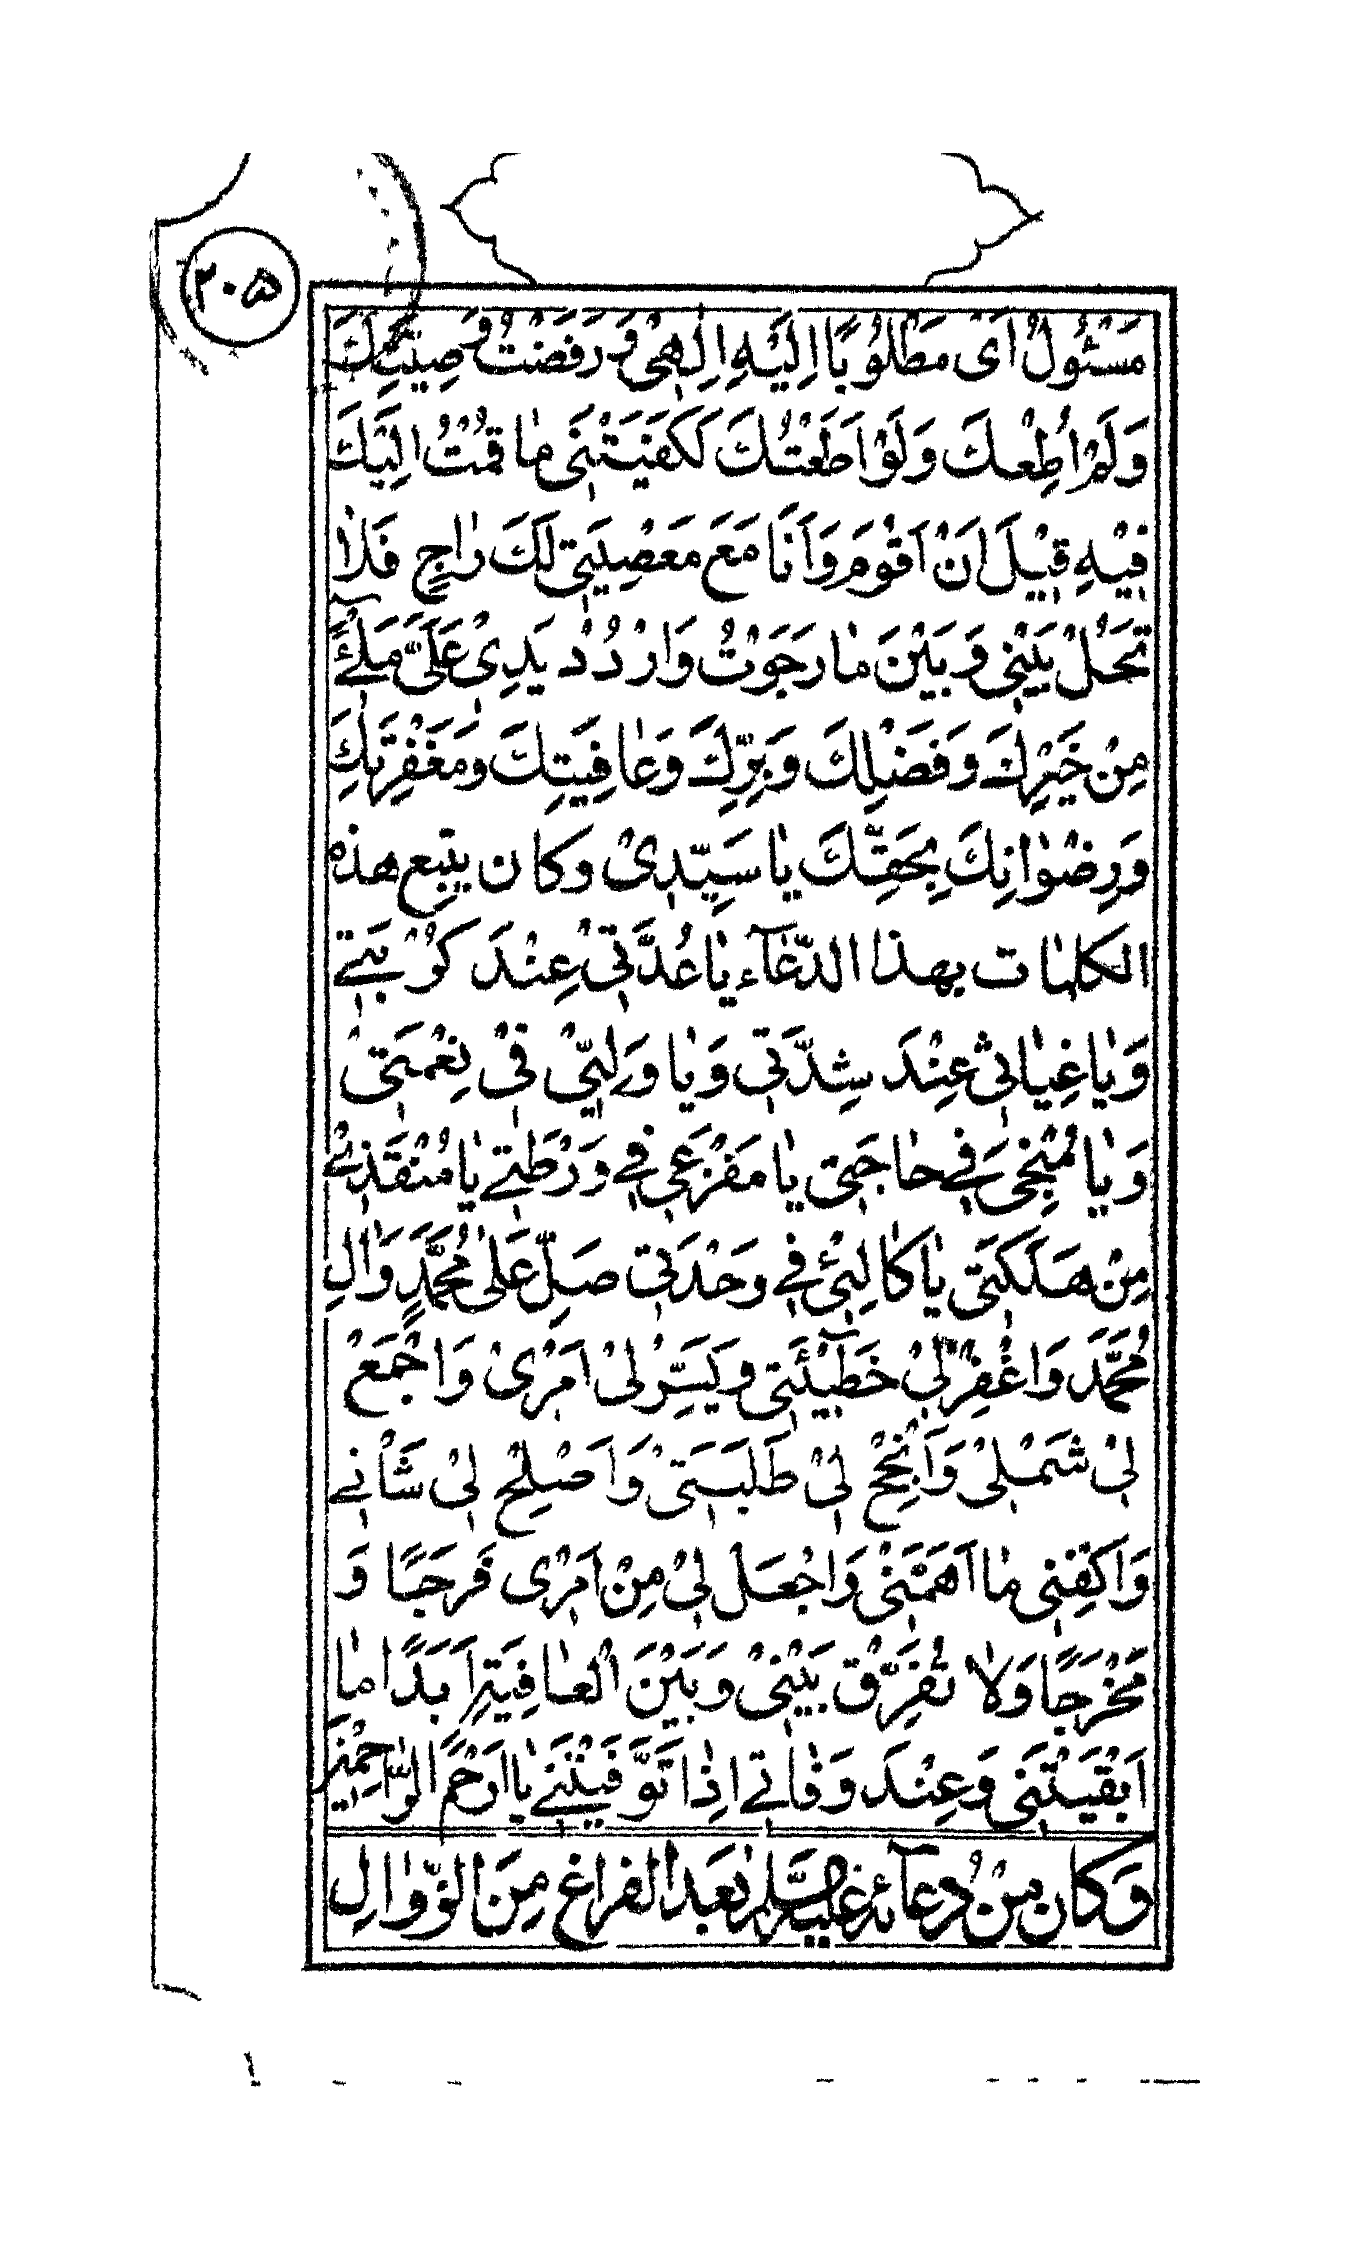 ۲۰۵
مَسْئُولٌ اَىْ مَطْلُوبًا اِلَيْهِ اِلٰهِىْ وَ رَفَضْتُ وَصِيَّتَكَ
وَلَمْ اُطِعْكَ وَلَوْ اَطَعْتُكَ لَكَفَيْتَنِىْ مٰا قُمْتُ اِلَيْكَ
فِيْهِ قَبْلَ اَنْ اَقُوْمَ وَاَنَا مَعَ مَعْصِيَتِىْ لَكَ رٰاجٍ فَلاٰ
تَحُلْ بَيْنِىْ وَ بَيْنَ مٰا رَجَوْتُ وَارْدُدْ يَدِىْ عَلَىَّ مَلْئٰ
مِنْ خَيْرِكَ وَفَضْلِكَ وَبِرِّكَ وَعٰافِيَتِكَ وَمَغْفِرَتِكَ
وَرِضْوٰانِكَ بِحَقِّكَ يٰا سَيِّدِىْ وكان يتبع هذه
الكلمٰات بهذا الدّعَآء يٰا عُدَّتِىْ عِنْدَ كُرْبَتِىْ
وَيٰا غِيٰاثِىْ عِنْدَ شِدَّتِىْ وَيٰا وَلِيّىْ فِىْ نِعْمَتِىْ
وَيٰا مُنْجِىَ فِىْ حٰاجَتِىْ يٰا مَفْزَعِىْ فِىْ وَرْطَتِىْ يٰا مُنْقِذِىْ
مِنْ هَلَكَتِىْ يٰا كٰالِئِىْ فِىْ وَحْدَتِىْ صَلِّ عَلٰى مُحَمَّدٍ وَاٰلِ
مُحَمَّدَ وَاغْفِرْ لِىْ خَطٓيْئَتِىْ وَيَسِّرْ لِىْ اَمْرِىْ وَاجْمَعْ
لِىْ شَمْلِىْ وَاَنْجِحْ لِىْ طَلِبَتِىْ وَاَصْلِحْ لِىْ شَأْنِىْ
وَاكْفِنِىْ مٰا اَهَمَّنِىْ وَاجْعَلْ لِىْ مِنْ اَمْرِىْ فَرَجًا وَ
مَخْرَجًا وَلاٰ تُفَرِّقْ بَيْنِىْ وَبَيْنَ الْعٰافِيَةِ اَبَدًا مٰا
اَبْقَيْتَنِىْ وَعِنْدَ وَفٰاتِىْ اِذٰا تَوَفَّيْتَنِىْ يٰا اَرْحَمَ الرّٰاحِمِيْنَ
وَكٰانَ مِنْ دُعٰآئِهِ عَلَيْهِ السَّلٰمُ بَعْدَ الْفَرٰاغِ مِنَ الزَّوٰالِ